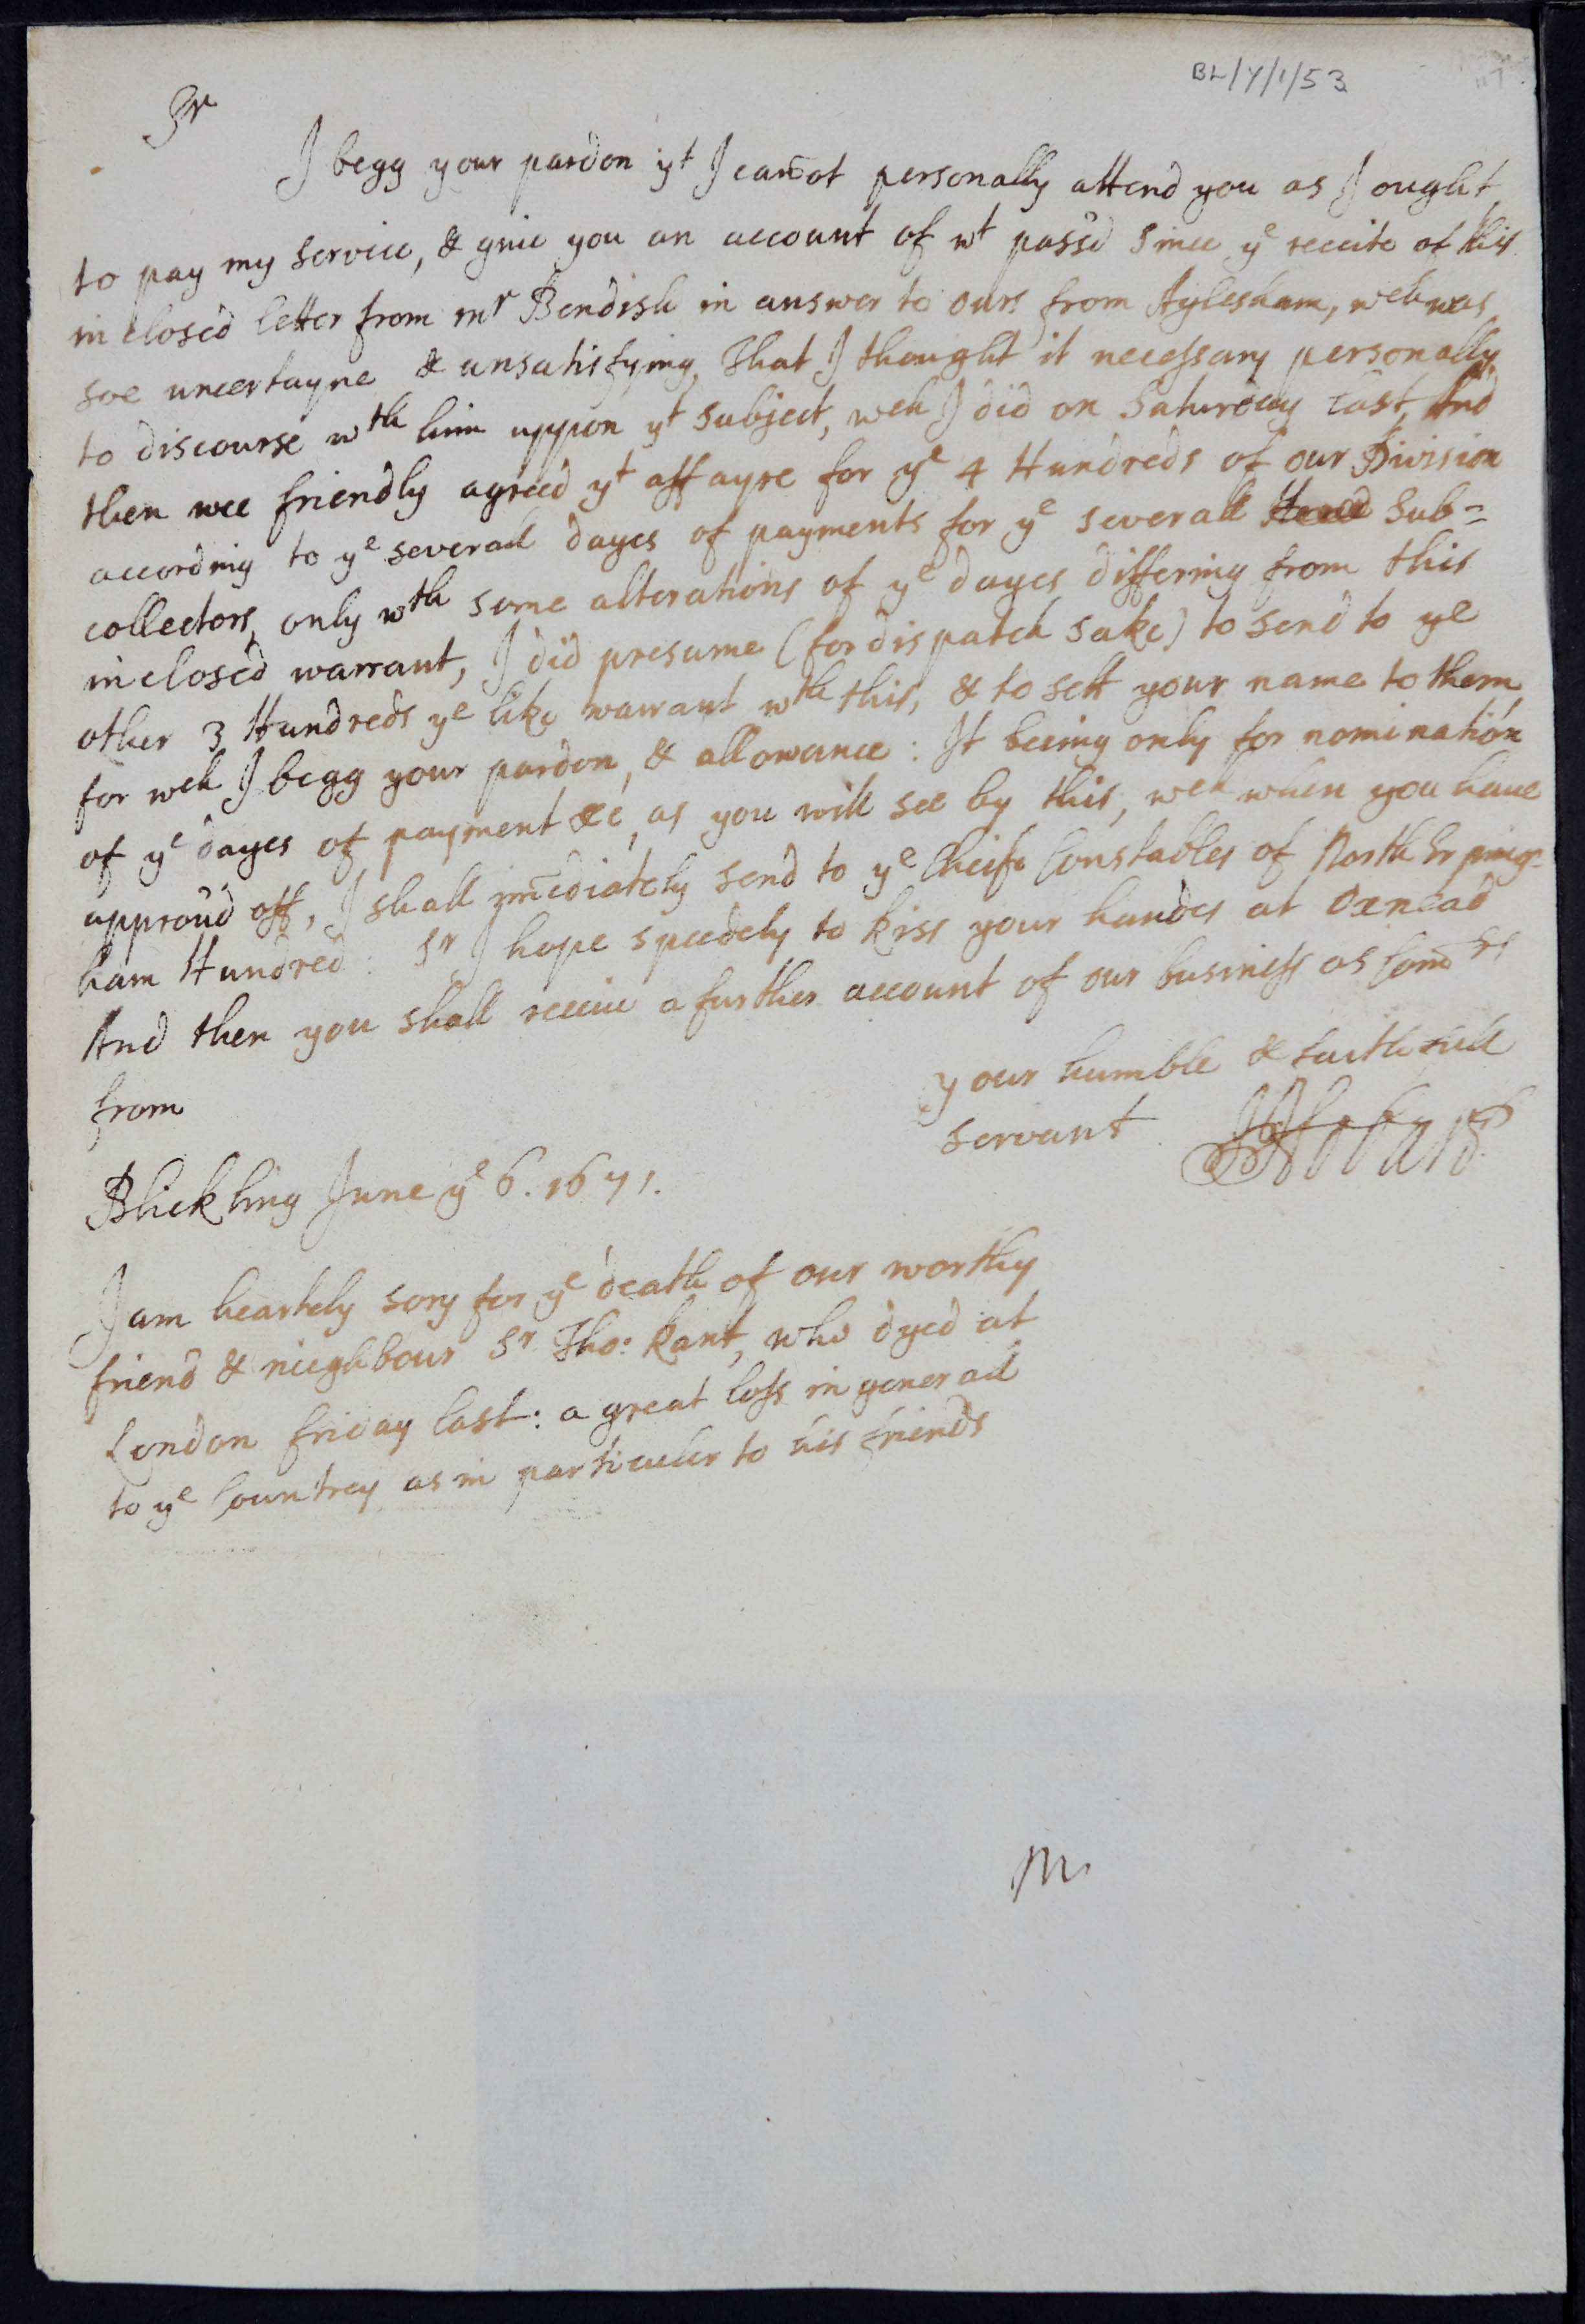 BL/Y/1/53
Sr
I begg your pardon yt I can̄ot personally attend you as I ought
to pay my service, & give you an account of wt pass'd since ye receite of this
inclosed letter from mr Bendish in answer to ours from Aylesham, wch was
soe uncertayne & unsatisfying, That I thought it necessary personally
to discourse wth him uppon yt subject, wch I did on Saturday last, And
then wee friendly agreed yt affayre for ye 4 Hundreds of our Division
according to ye severall dayes of payments for ye severall Sub=
collectors, only wth some alterations of ye dayes differing from this
inclosed warrant, I did presume (for dispatch sake) to send to ye
other 3 Hundreds ye like warrant wth this, & to sett your name to them,
for wch I begg your pardon, & allowance: It beeing only for nomination
of ye dayes of payment &c, as you will see by this, wch when you have
approu'd off, I shall im̄ediately send to ye Cheife Constables of North Erping=
ham Hundred: Sr I hope speedely to kiss your handes at Oxnead
And then you shall receiue a further account of our business as Com̄rs
from
your humble & faithfull
servant JHobart
Blickling June ye 6. 1671.
I am heartely sory for ye death of our worthy
friend & nieghbour Sr Tho: Rant, who dyed at
London friday last: a great loss in generall
to ye Countrey as in particuler to his friends
M